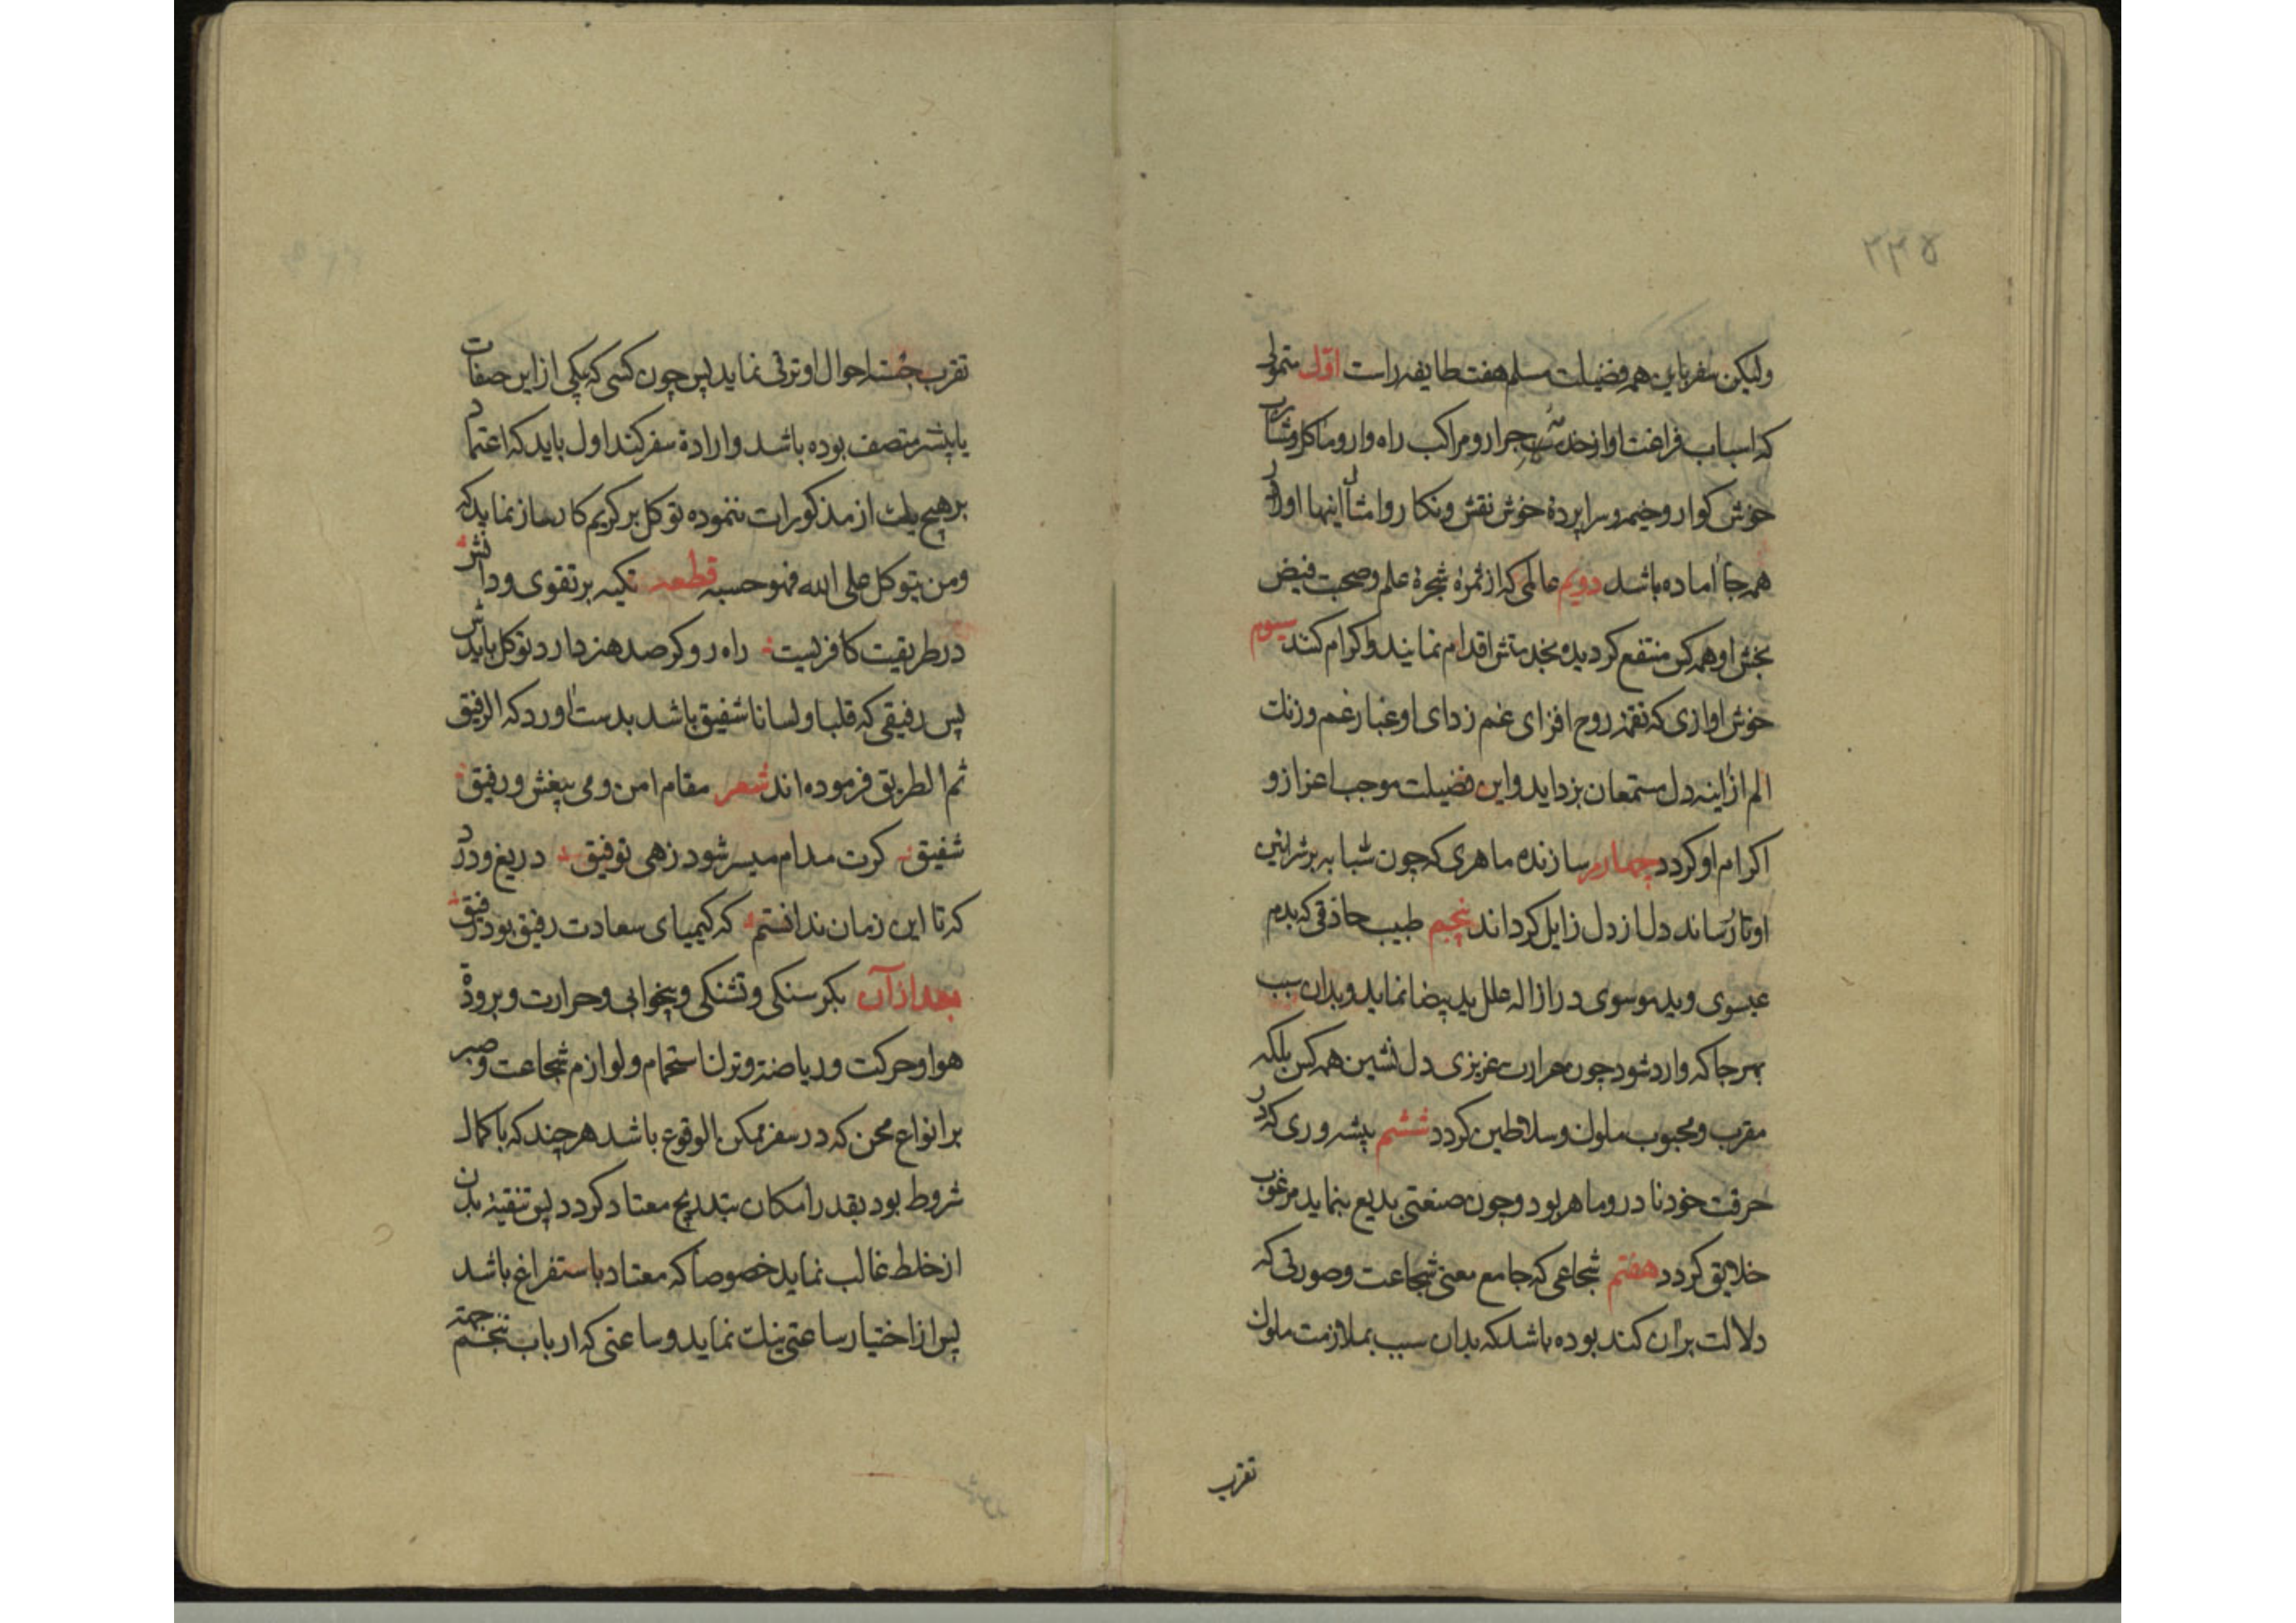 ۲۳۵
ولیکن سفر باین همه فضیلت مسلم هفت طایفه راست اوّل متمولی
که اسباب فراغت او از خدمه جرار و مراکب راه وار و ماکل و مشارب
خوش کوار و خیمه و سراپردهٔ خوش نقش و نکار و امثال اینها او را در
همه جا اماده باشد دویم عالمی که از ثمرهٔ شجرهٔ علم و صحبت فیض
بخش او همه کس منتفع کردیده بخدمتش اقدام نمایند و اکرام کنند سیوم
خوش اوازی که نغمه روح افزای غم زدای او غبار غم و زنک
الم از اینه دل مستمعان بزداید و این فضیلت موجب اعزاز و
اکرام او کردد چهارم سازنده ماهری که چون شبا به بر شرانین
اوتار رساند دل از دل زایل کرداند پنجم طبیب حاذقی که بدم
عیسوی و ید موسوی در ازاله علل ید بیضا نماید و بدان سبب
بهر جا که وارد شود چون حرارت غریزی دل نشین همه کس بلکه
مقرب و محبوب ملوک و سلاطین کردد ششم پیشه وری که در
حرفت خود نادر و ماهر بود و چون صنعتی بدیع بنماید مرغوب
خلایق کردد هفتم شجاعی که جامع معنی شجاعت و صورتی که
دلالت بران کند بوده باشد که بدان سبب بملازمت ملوک
تقرب
تقرب جسته احوال او ترقی نماید پس چون کسی که یکی از این صفات
یا بیشتر متصف بوده باشد و ارادهٔ سفر کند اول باید که اعتماد
بر هیچ یک از مذکورات ننموده توکل بر کریم کارساز نماید که
ومن یتوکل علی الله فهو حسبه قطعه تکیه بر تقوی و دانش
در طریقت کافریست راه رو کر صد هنر دارد توکل بایدش
پس رفیقی که قلبا و لسانا شفیق باشد بدست اورد که الرفیق
ثم الطریق فرموده اند شعر مقام امن و می بیغش و رفیق
شفیق کرت مدام میسر شود زهی توفیق دریغ و درد
که تا این زمان ندانستم که کیمیای سعادت رفیق بود رفیق
بعد از آن بکرسنکی و تشنکی و بیخوابی و حرارت و برودة
هوا و حرکت و ریاضة و ترک استحمام و لوازم شجاعت و صبر
بر انواع محن که در سفر ممکن الوقوع باشد هر چند که با کمال
شروط بود بقدر امکان بتدریج معتاد کردد پس تنقیهٔ بدن
از خلط غالب نماید خصوصا که معتاد باستفراغ باشد
پس از اختیار ساعتی نیک نماید و ساعتی که ارباب تنجیم جهة